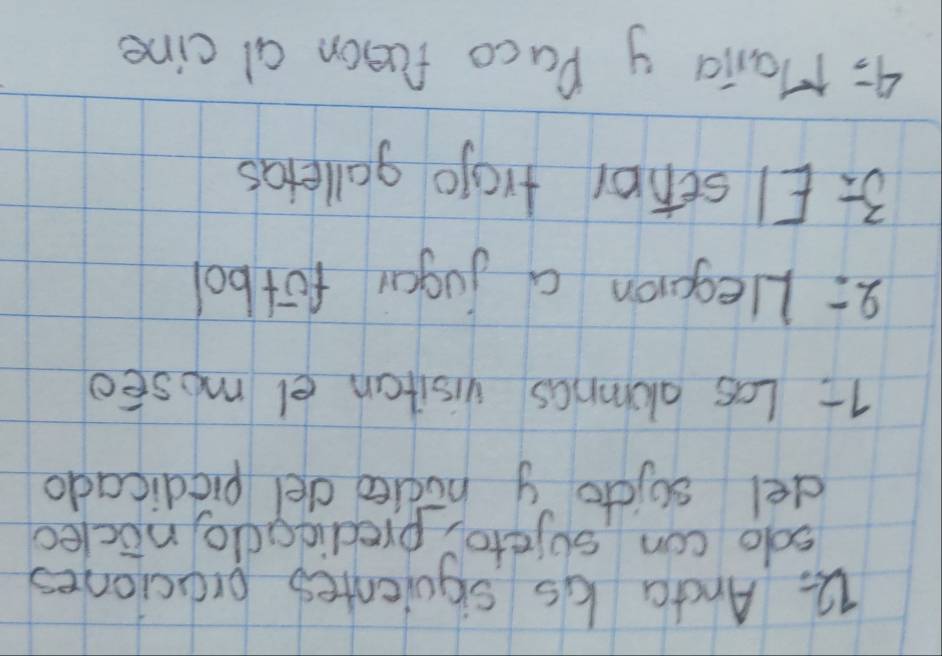 12.- Anota las siguientes oraciones
solo con sujeto, predicado, núcleo
del sujeto y núcleo del predicado
1.- Las alumnas visitan el museo
2.- Llegaron a jugar fútbol
3.- El señor trajo galletas
4.- María y Paco fueron al cine